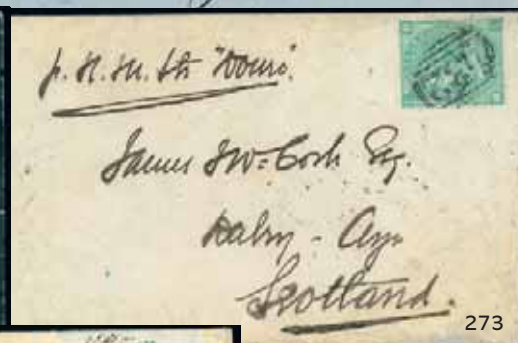 p. R. M. Str "Douro".
James Mc.Cosh Esq.
Dalry - Ayr
Scotland.
273